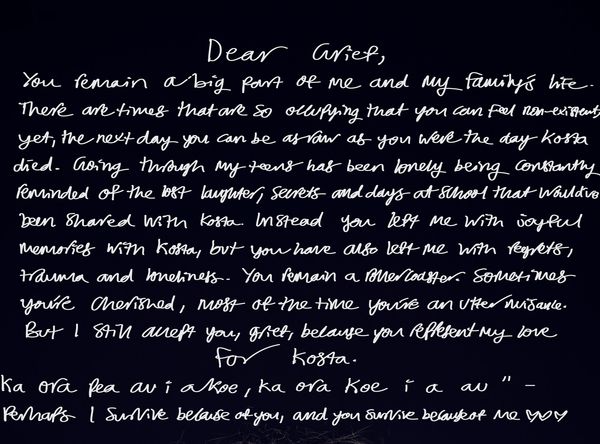 Dear Grief,
You remain a big part of me and my family's life.
There are times that are so occupying that you can feel non-existent,
yet, the next day you can be as raw as you were the day Kosta
died. Going through my teens has been lonely being constantly
reminded of the lost laughter, secrets and days at school that would've
been shared with Kosta. Instead you left me with joyful
memories with Kosta, but you have also left me with regrets,
trauma and loneliness. You remain a rollercoaster. Sometimes
you're cherished, most of the time you're an utter nuisance.
But I still accept you, grief, because you represent my love
for Kosta.
Ka ora pea au i a koe, ka ora koe i a au " -
Perhaps I survive because of you, and you survive because of me ♡♡♡